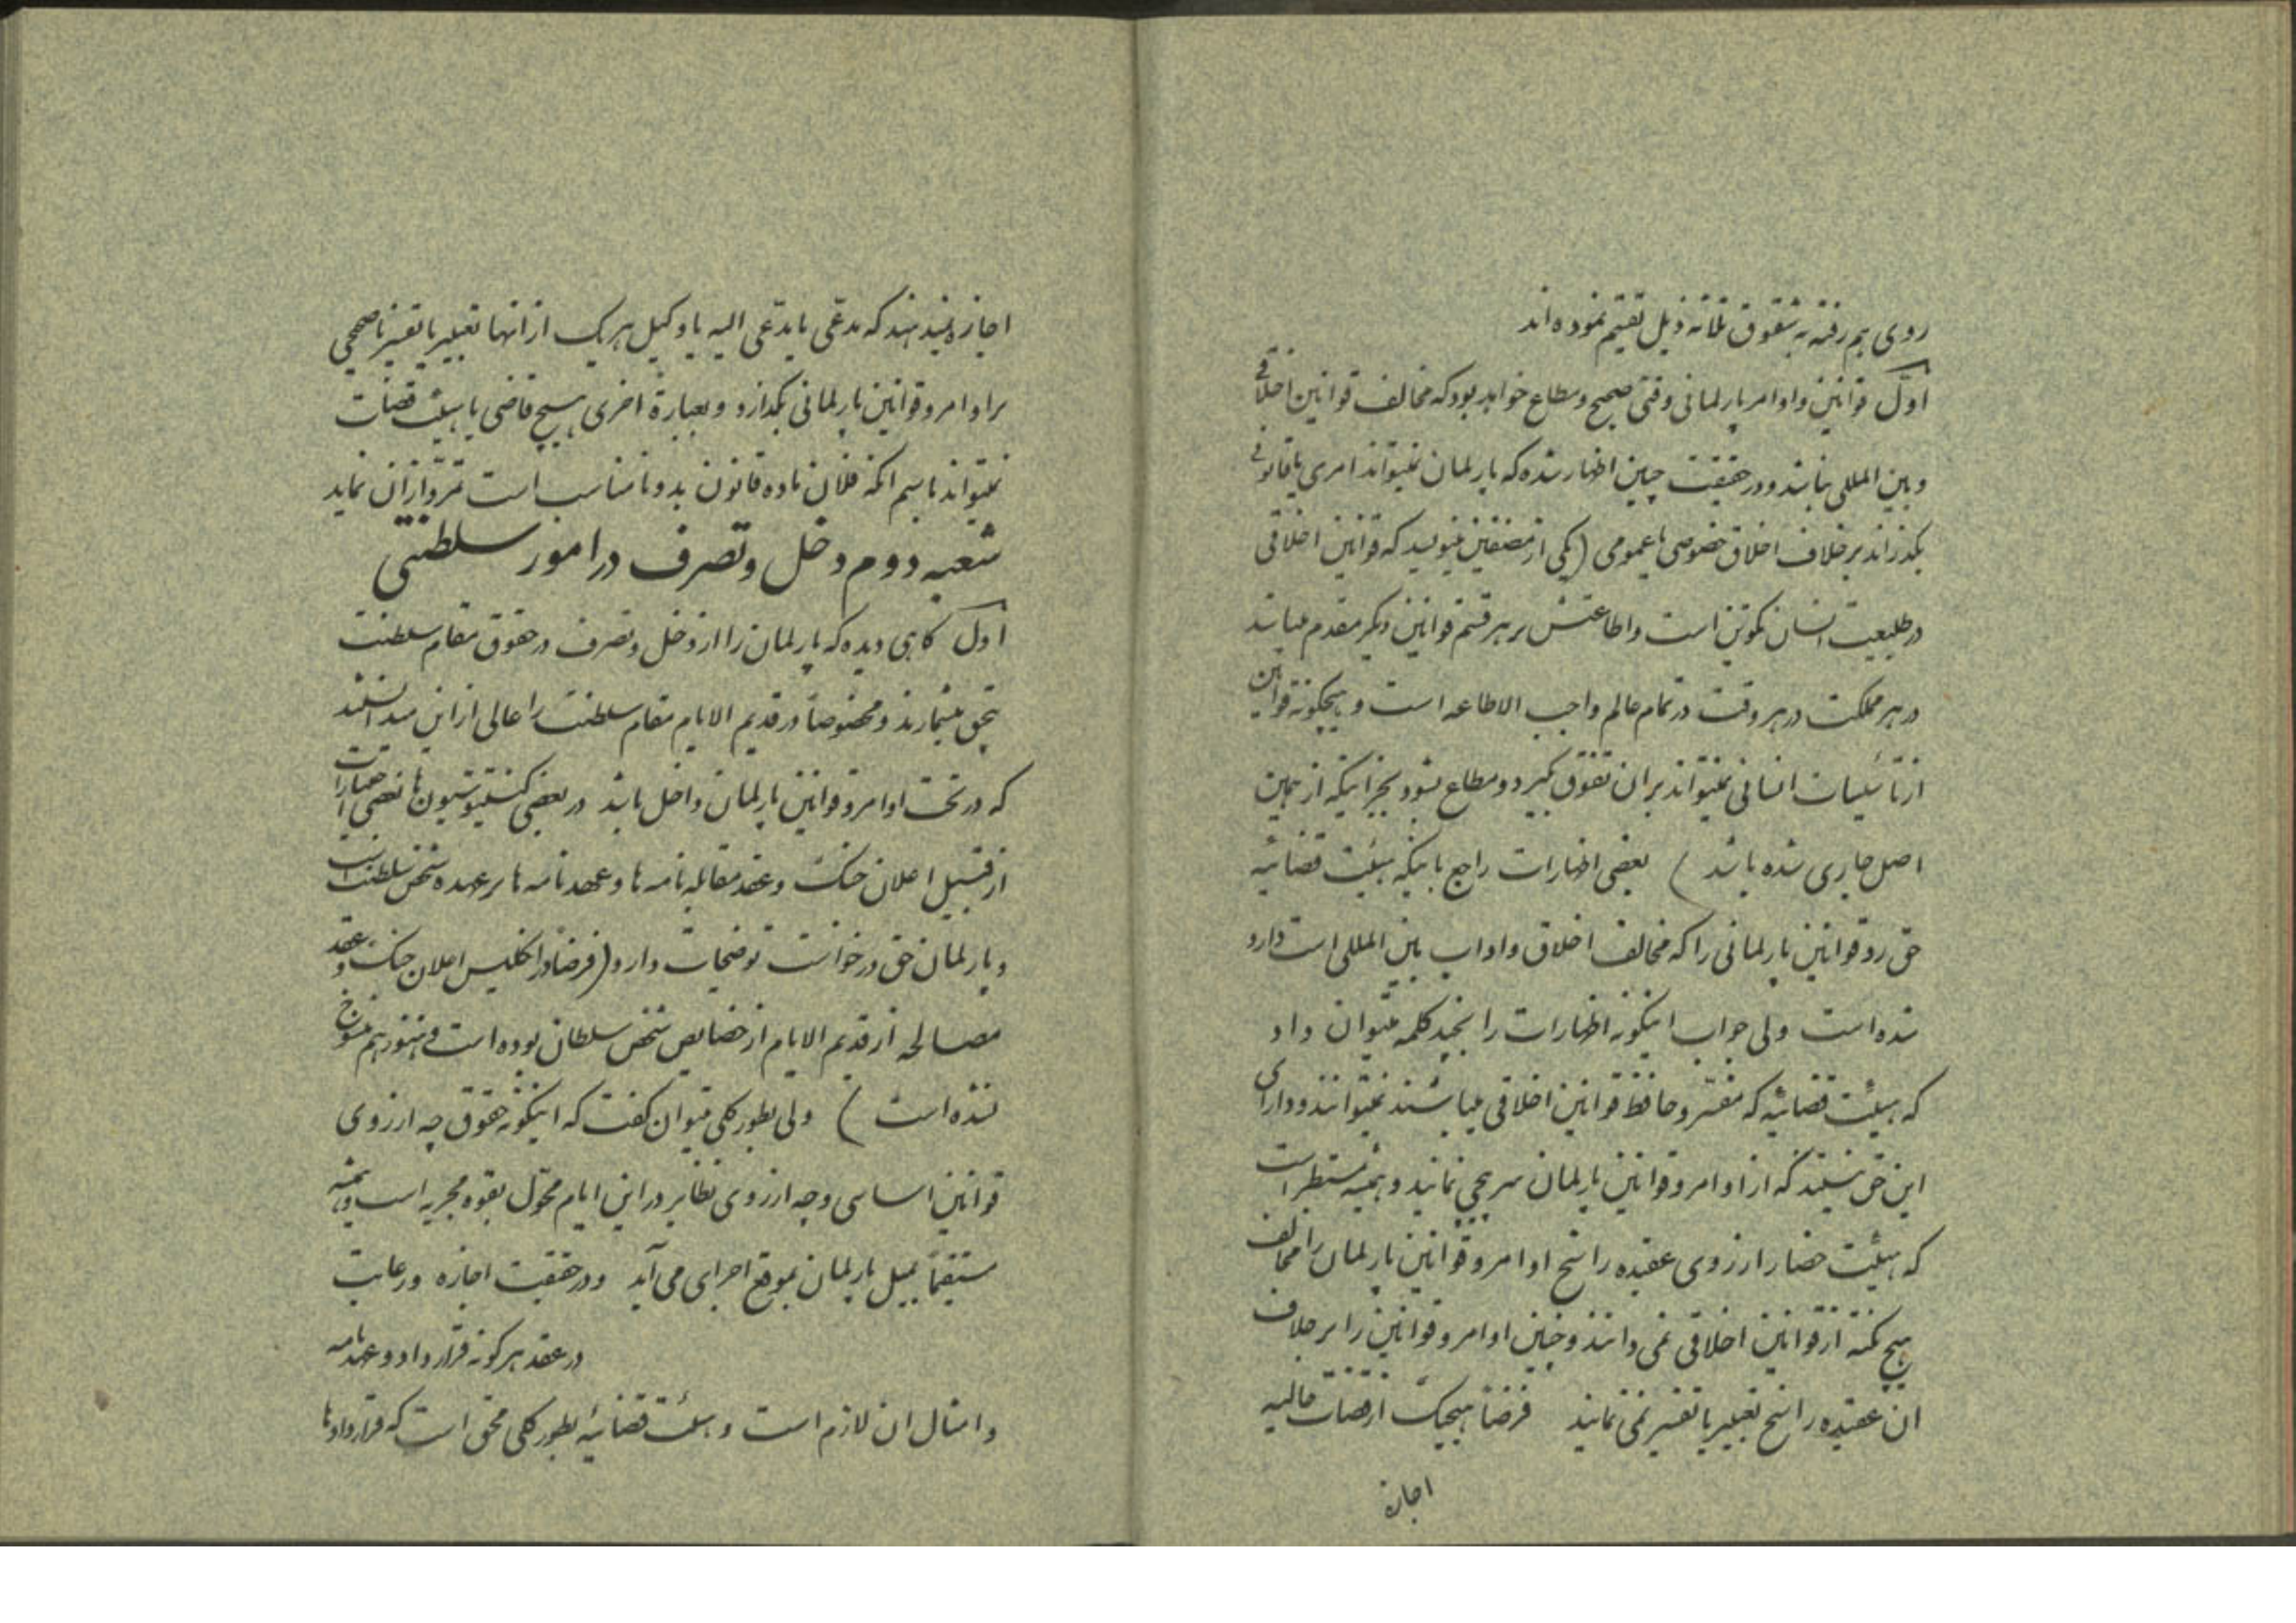 روی هم رفته به شقوق ثلاثه ذیل تقسیم نموده اند
اول قوانین و اوامر پارلمانی وقتی صحیح و مطاع خواهد بود که مخالف قوانین اخلاقی
و بین المللی نباشد و در حقیقت چنین اظهار شده که پارلمان نمیتواند امری یا قانونی
بگذراند بر خلاف اخلاق خصوصی یا عمومی (یکی از مصنفین مینویسد که قوانین اخلاقی
در طبیعت انسان تکوین است و اطاعتش بر هر قسم قوانین دیگر مقدم میباشد
در هر مملکت در هر وقت در تمام عالم واجب الاطاعه است و هیچگونه قوانین
از تأسیسات انسانی نمیتواند بر ان تفوق گیرد و مطاع بشود بجز اینکه از همین
اصل جاری شده باشد) بعضی اظهارات راجع باینکه هیئت قضائیه
حق رد قوانین پارلمانی را که مخالف اخلاق و اداب بین المللی است دارد
شده است ولی جواب اینگونه اظهارات را بچند کلمه میتوان داد
که هیئت قضائیه که مفسر و حافظ قوانین اخلاقی میباشند نمیتوانند و دارای
این حق نیستند که از اوامر و قوانین پارلمان سرپیچی نمایند و همیشه مستظهر است
که هیئت حضار از روی عقیده راسخ اوامر و قوانین پارلمان را مخالف
هیچ نکته از قوانین اخلاقی نمی دانند و چنین اوامر و قوانین را بر خلاف
ان عقیده راسخ تعبیر یا تفسیر نمی نمایند فرضاً هیچیک از قضات حالیه
اجازه
اجازه نمیدهند که مدعی یا مدعی الیه یا وکیل هر یک از انها تعبیر یا تفسیر ناصحیحی
بر اوامر و قوانین پارلمانی بگذارد و بعبارة اخری هیچ قاضی یا هیئت قضات
نمیتواند باسم انکه فلان ماده قانون بد و نامناسب است تمرد از ان نماید
شعبه دوم دخل و تصرف در امور سلطنتی
اول گاهی دیده که پارلمان را از دخل و تصرف در حقوق مقام سلطنت
بیحق میشمارند و مخصوصاً در قدیم الایام مقام سلطنت را عالی از این میدانستند
که در تحت اوامر و قوانین پارلمان داخل باشد در بعضی کنستیتوسیون ها بعضی اختیارات
از قبیل اعلان جنگ و عقد مقابله نامه ها و عهد نامه ها بر عهده شخص سلطنت است
و پارلمان حق درخواست توضیحات دارد (فرضاً در انگلیس اعلان جنگ و عقد
مصالحه از قدیم الایام از خصایص شخص سلطان بوده است و هنوز هم منسوخ
نشده است) ولی بطور کلی میتوان گفت که اینگونه حقوق چه از روی
قوانین اساسی و چه از روی نظایر در این ایام محول بقوه مجریه است و همیشه
مستقیماً بمیل پارلمان بموقع اجرای می آید و در حقیقت اجازه و رعایت
در عقد هر گونه قرار داد و عهدنامه
و امثال ان لازم است و هیئت قضائیه بطور کلی محق است که قراردادها